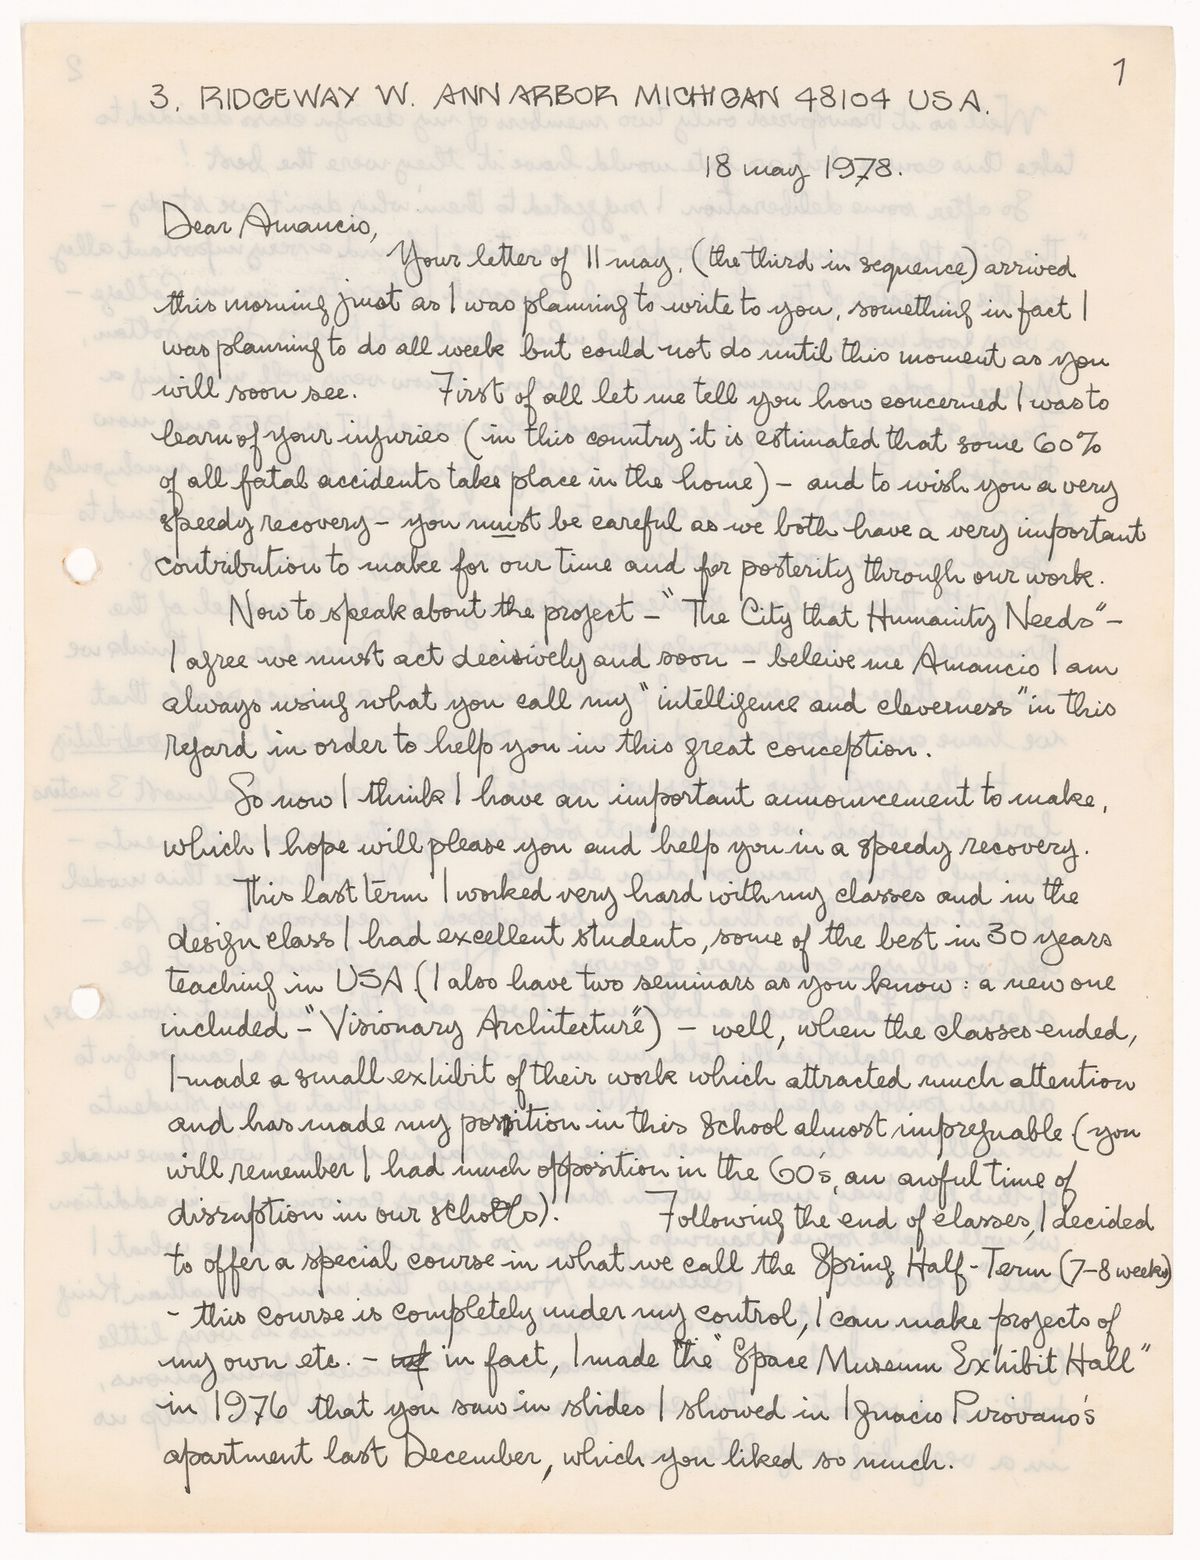 1
3. RIDGEWAY W. ANN ARBOR MICHIGAN 48104 USA.
18 may 1978.
Dear Amancio,
Your letter of 11 may, (the third in sequence) arrived
this morning just as I was planning to write to you, something in fact I
was planning to do all week but could not do until this moment as you
will soon see. First of all let me tell you how concerned I was to
learn of your injuries (in this country it is estimated that some 60%
of all fatal accidents take place in the home) – and to wish you a very
speedy recovery – you must be careful as we both have a very important
contribution to make for our time and for posterity through our work.
Now to speak about the project – "The City that Humanity Needs" –
I agree we must act decisively and soon – beleive me Amancio I am
always using what you call my "intelligence and cleverness" in this
regard in order to help you in this great conception.
So now I think I have an important announcement to make,
which I hope will please you and help you in a speedy recovery.
This last term I worked very hard with my classes and in the
design class I had excellent students, some of the best in 30 years
teaching in USA (I also have two seminars as you know: a new one
included – "Visionary Architecture") – well, when the classes ended,
I made a small exhibit of their work which attracted much attention
and has made my position in this School almost impregnable (you
will remember I had much opposition in the 60's, an awful time of
disruption in our schools). Following the end of classes, I decided
to offer a special course in what we call the Spring Half-Term (7–8 weeks)
– this course is completely under my control, I can make projects of
my own etc. – in fact, I made the "Space Museum Exhibit Hall"
in 1976 that you saw in slides I showed in Ignacio Pirovano's
apartment last December, which you liked so much.